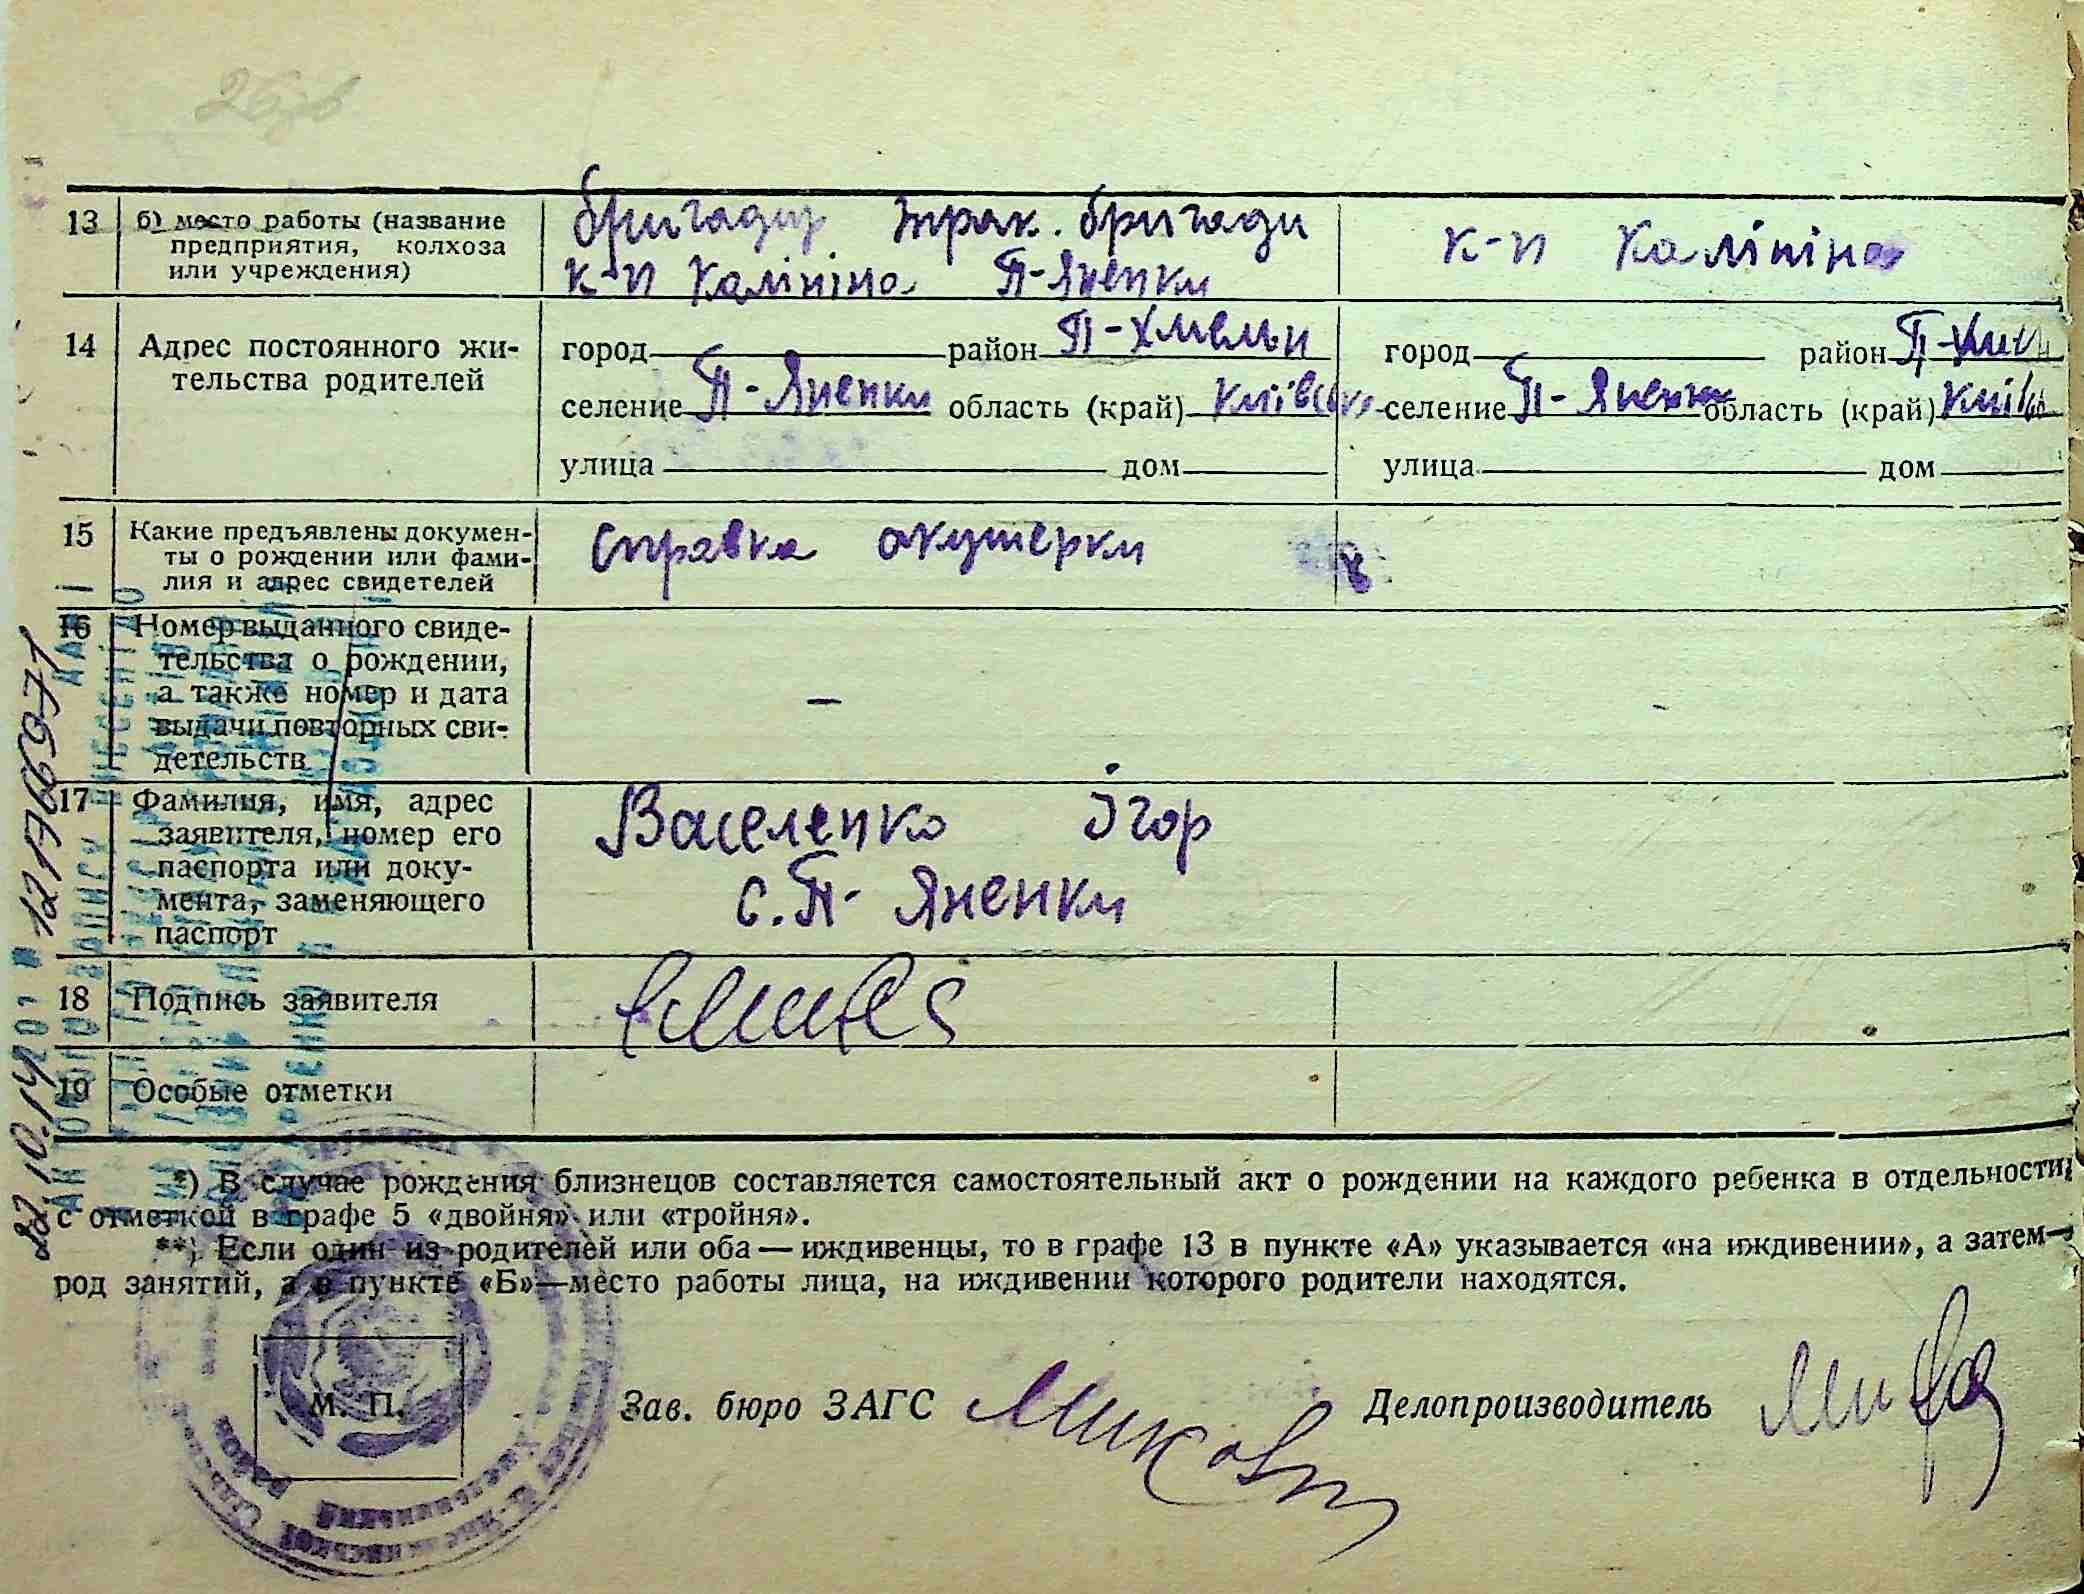 13 б) место работы (название
предприятия, колхоза
или учреждения)
бригадир трак. бригади
к-п Калініна П-Яненки
к-п Калініна
14 Адрес постоянного жи-
тельства родителей
город район П-Хмельн
селение П-Яненки область (край) Київськ
улица дом
город район
селение П-Яненки область (край)
улица дом
15 Какие предъявлены докумен-
ты о рождении или фами-
лия и адрес свидетелей
Справка акушерки
16 Номер выданного свиде-
тельства о рождении,
а также номер и дата
выдачи повторных сви-
детельств
–
17 Фамилия, имя, адрес
заявителя, номер его
паспорта или доку-
мента, заменяющего
паспорт
Васеленко Ігор
с. П-Яненки
18 Подпись заявителя
19 Особые отметки
*) В случае рождения близнецов составляется самостоятельный акт о рождении на каждого ребенка в отдельности,
с отметкой в графе 5 «двойня» или «тройня».
**) Если один из родителей или оба — иждивенцы, то в графе 13 в пункте «А» указывается «на иждивении», а затем—
род занятий, а в пункте «Б»—место работы лица, на иждивении которого родители находятся.
М. П.
Зав. бюро ЗАГС Делопроизводитель
район